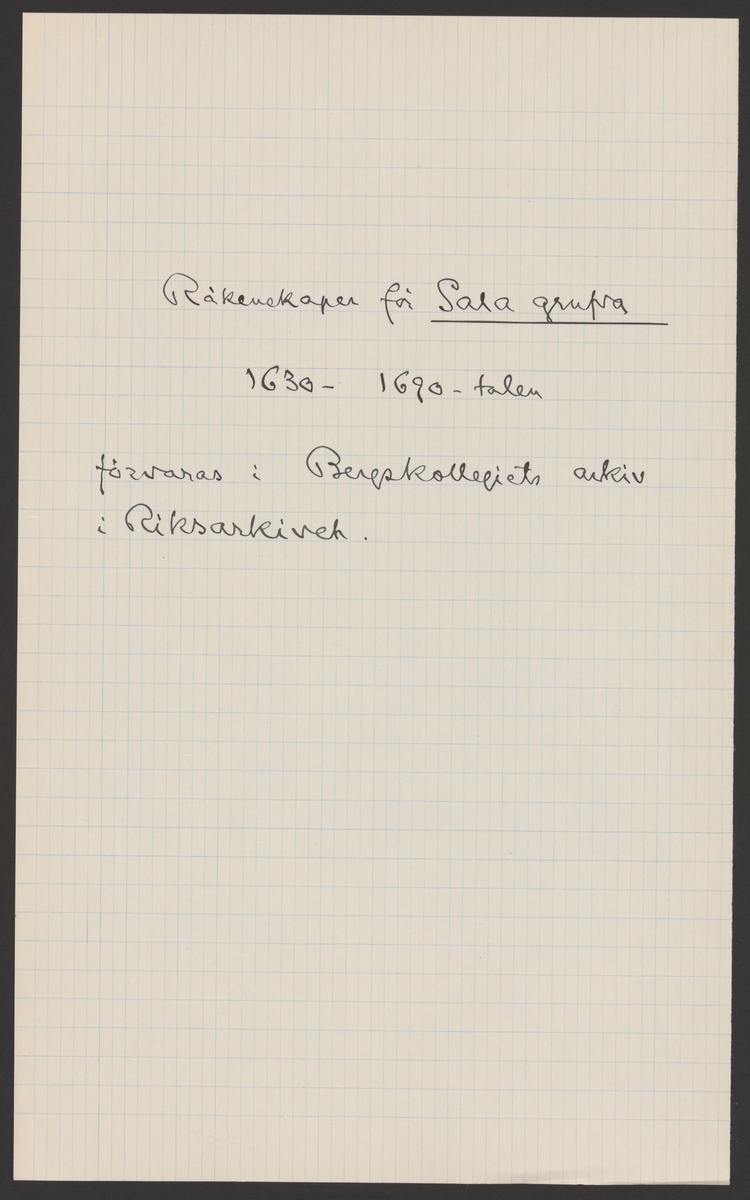 Räkenskaper för Sala grufva
1630- 1690-talen
förvaras i Bergskollegiets arkiv
i Riksarkivet.